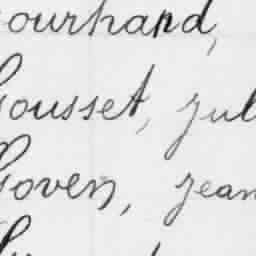 ourhand,
Gousset, jul
Goven, jean